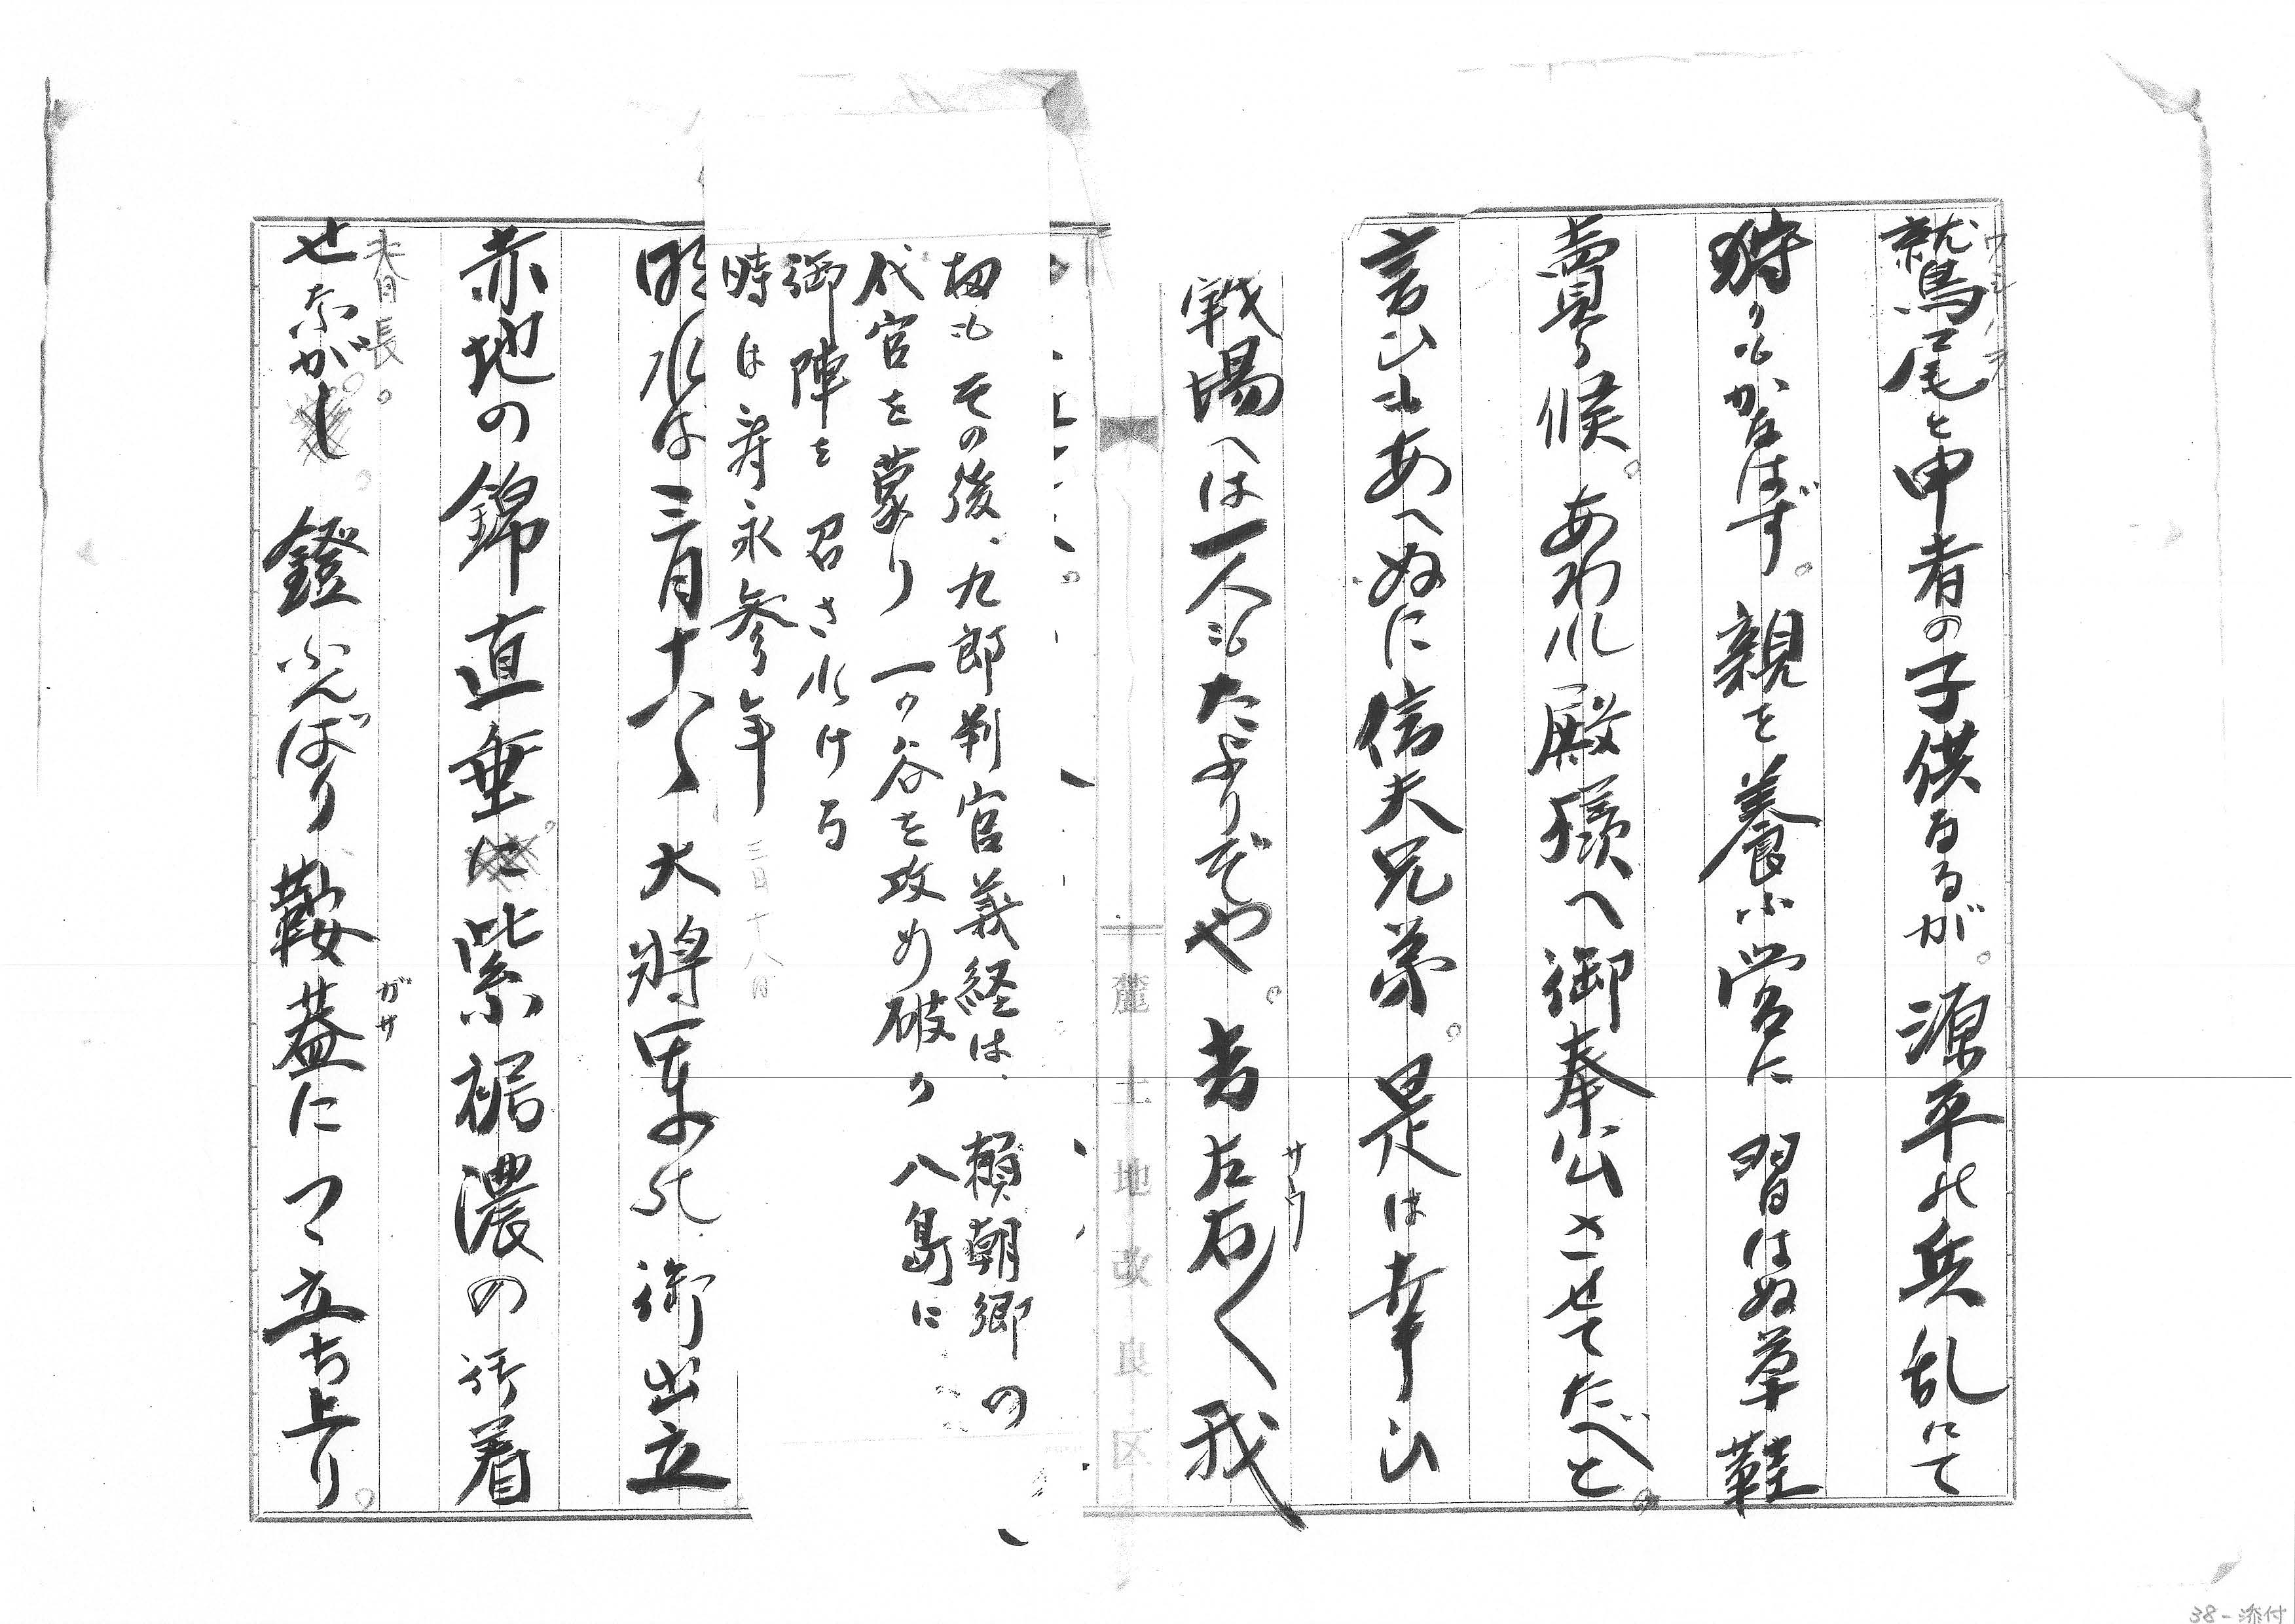 鷲尾と申者の子供なるが。源平の兵乱にて
ワシノヲ
狩りもかなはず。親を養ふ営に習はぬ草鞋
賣り候。あわれ殿様へ御奉公させてたべと。
言ひもあへぬに信夫兄弟。是は幸ひ
戦場へは一人もたよりぞや。者左右〱我
サウ
扨もその後、九郎判官義経は、頼朝郷の
代官を蒙り一の谷を攻め破り八島に
御陣を召されける
時は寿永参年
三月十八日
明れば三月十八日大將軍の御出立
赤地の錦直垂に紫裾濃の御着
せながし 鐙ふんばり鞍蓋につゝ立ち上り。
着長。
ガサ
38-添付